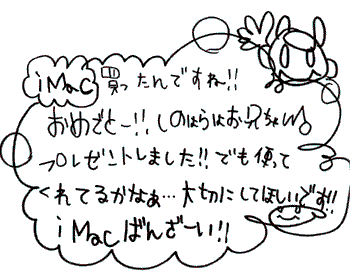 iMac買ったんですねー!!
おめでとー!!しのはらはお兄ちゃんに
プレゼントしました!!でも使って
くれてるかなぁ…大切にしてほしいです!!
iMacばんざーい!!